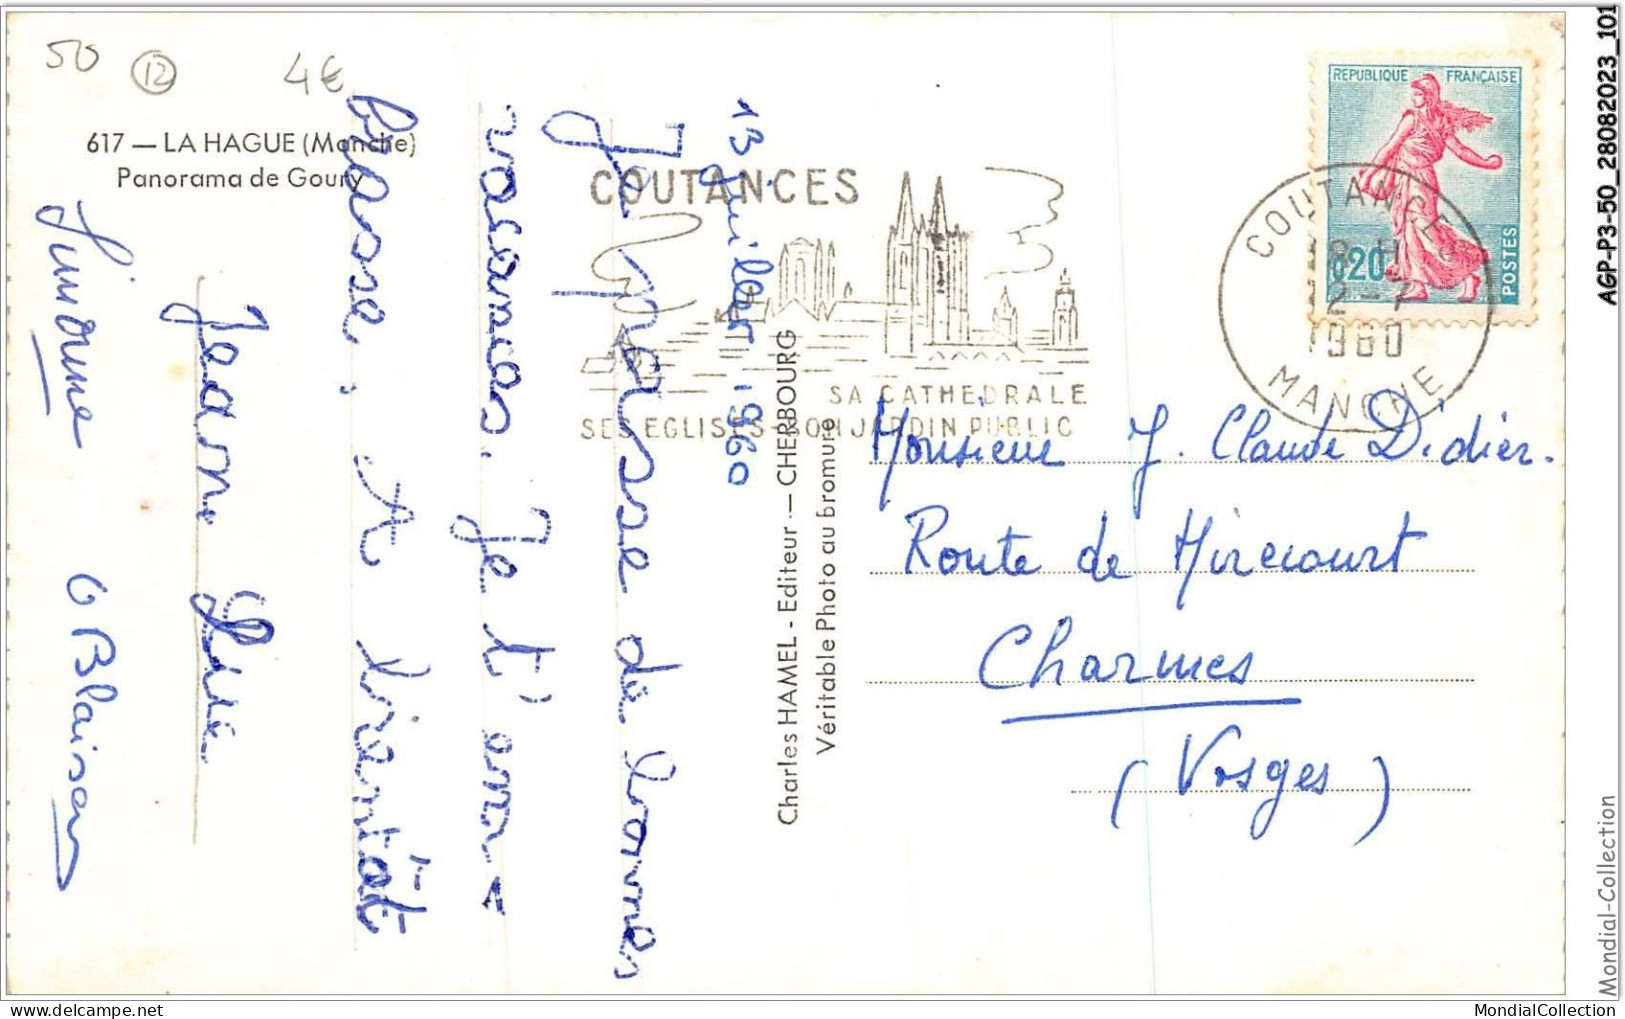 50
12
4€
617 — LA HAGUE (Manche)
Panorama de Goury
13 juillet 1960
Je passe de bonnes
vacances. Je t'em-
brasse. A bientôt
Jean Luc
Simonne
G Blaison
Charles HAMEL - Editeur - CHERBOURG
Véritable Photo au bromure
COUTANCES
SA CATHEDRALE
SES EGLISES - SON JARDIN PUBLIC
REPUBLIQUE FRANÇAISE
0,20
POSTES
COUTANCES
18 H
12-7
1960
MANCHE
Monsieur J. Claude Didier.
Route de Mirecourt
Charmes
(Vosges)
AGP-P3-50_28082023_101
Mondial-Collection
MondialCollection